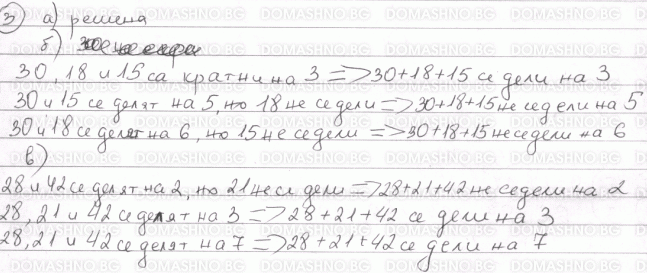 3) а) решена
б)
30, 18 и 15 са кратни на 3 => 30+18+15 се дели на 3
30 и 15 се делят на 5, но 18 не се дели => 30+18+15 не се дели на 5
30 и 18 се делят на 6, но 15 не се дели => 30+18+15 не се дели на 6
в)
28 и 42 се делят на 2, но 21 не се дели => 28+21+42 не се дели на 2
28, 21 и 42 се делят на 3 => 28+21+42 се дели на 3
28, 21 и 42 се делят на 7 => 28+21+42 се дели на 7